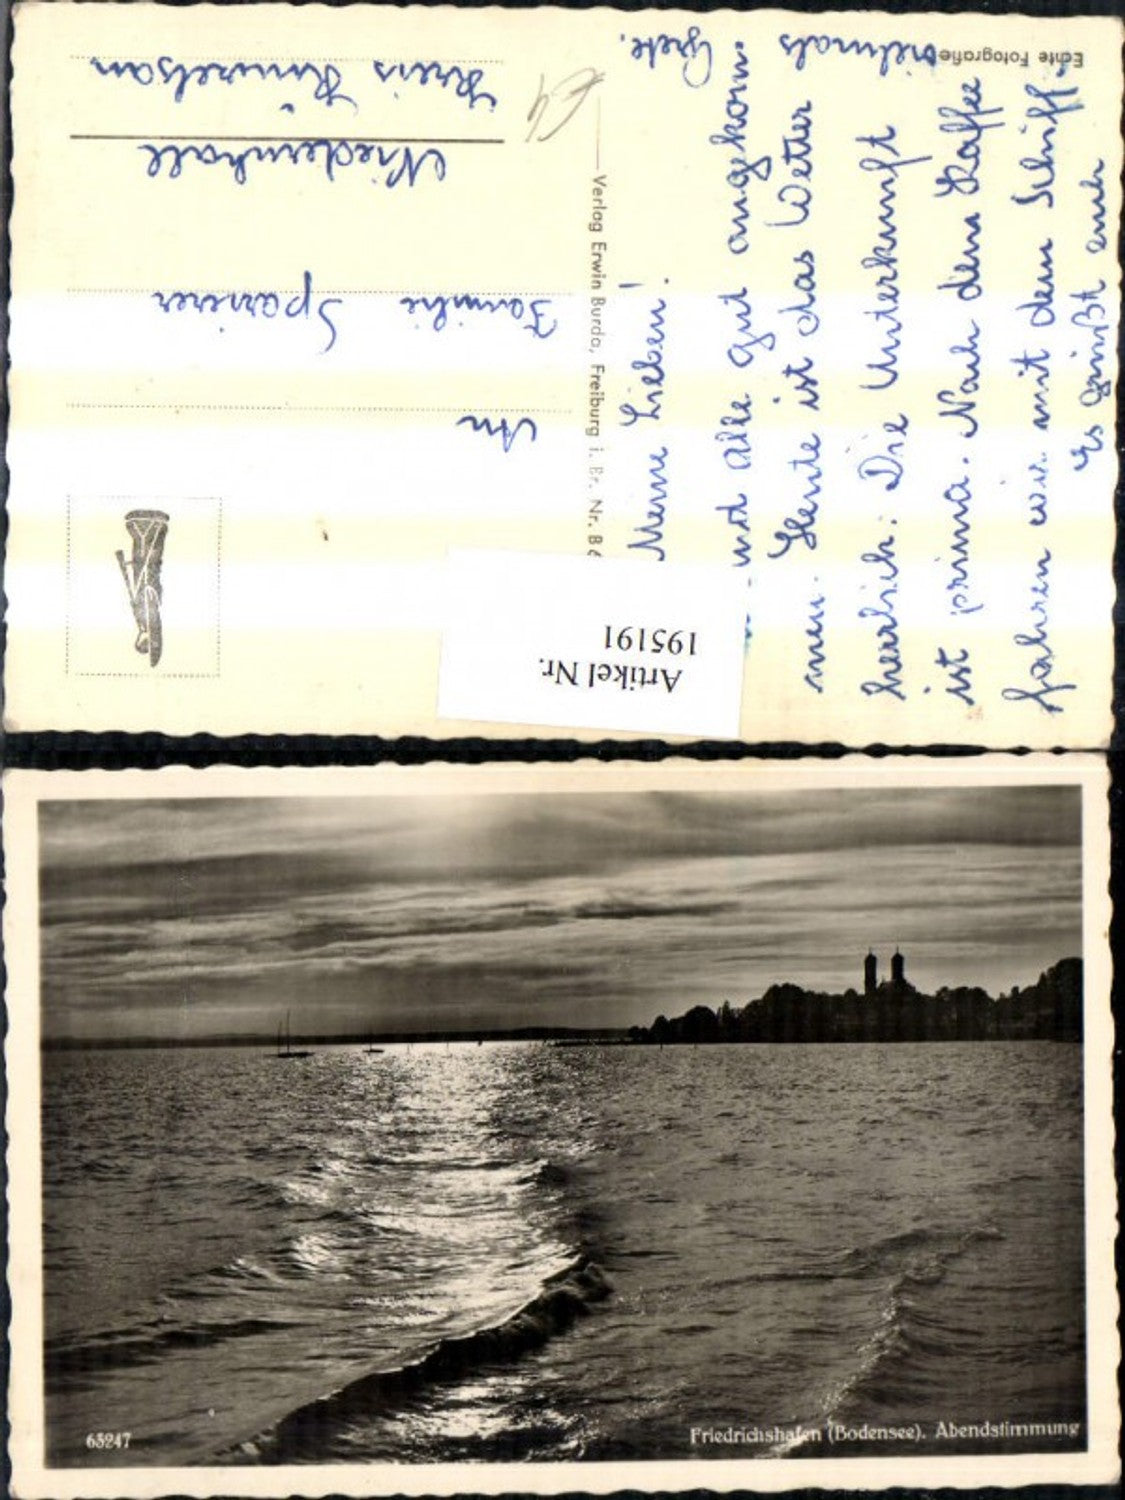 Echte Fotografie
Meine Lieben!
sind alle gut angekom-
men. Heute ist das Wetter
herrlich. Die Unterkunft
ist prima. Nach dem Kaffee
fahren wir mit dem Schiff.
Es grüßt euch
vielmals
Grete.
Verlag Erwin Burda, Freiburg i. Br. Nr. B 6
An
Familie
Niedernhall
Kreis Künzelsau
Artikel Nr.
195191
63247
Friedrichshafen (Bodensee). Abendstimmung